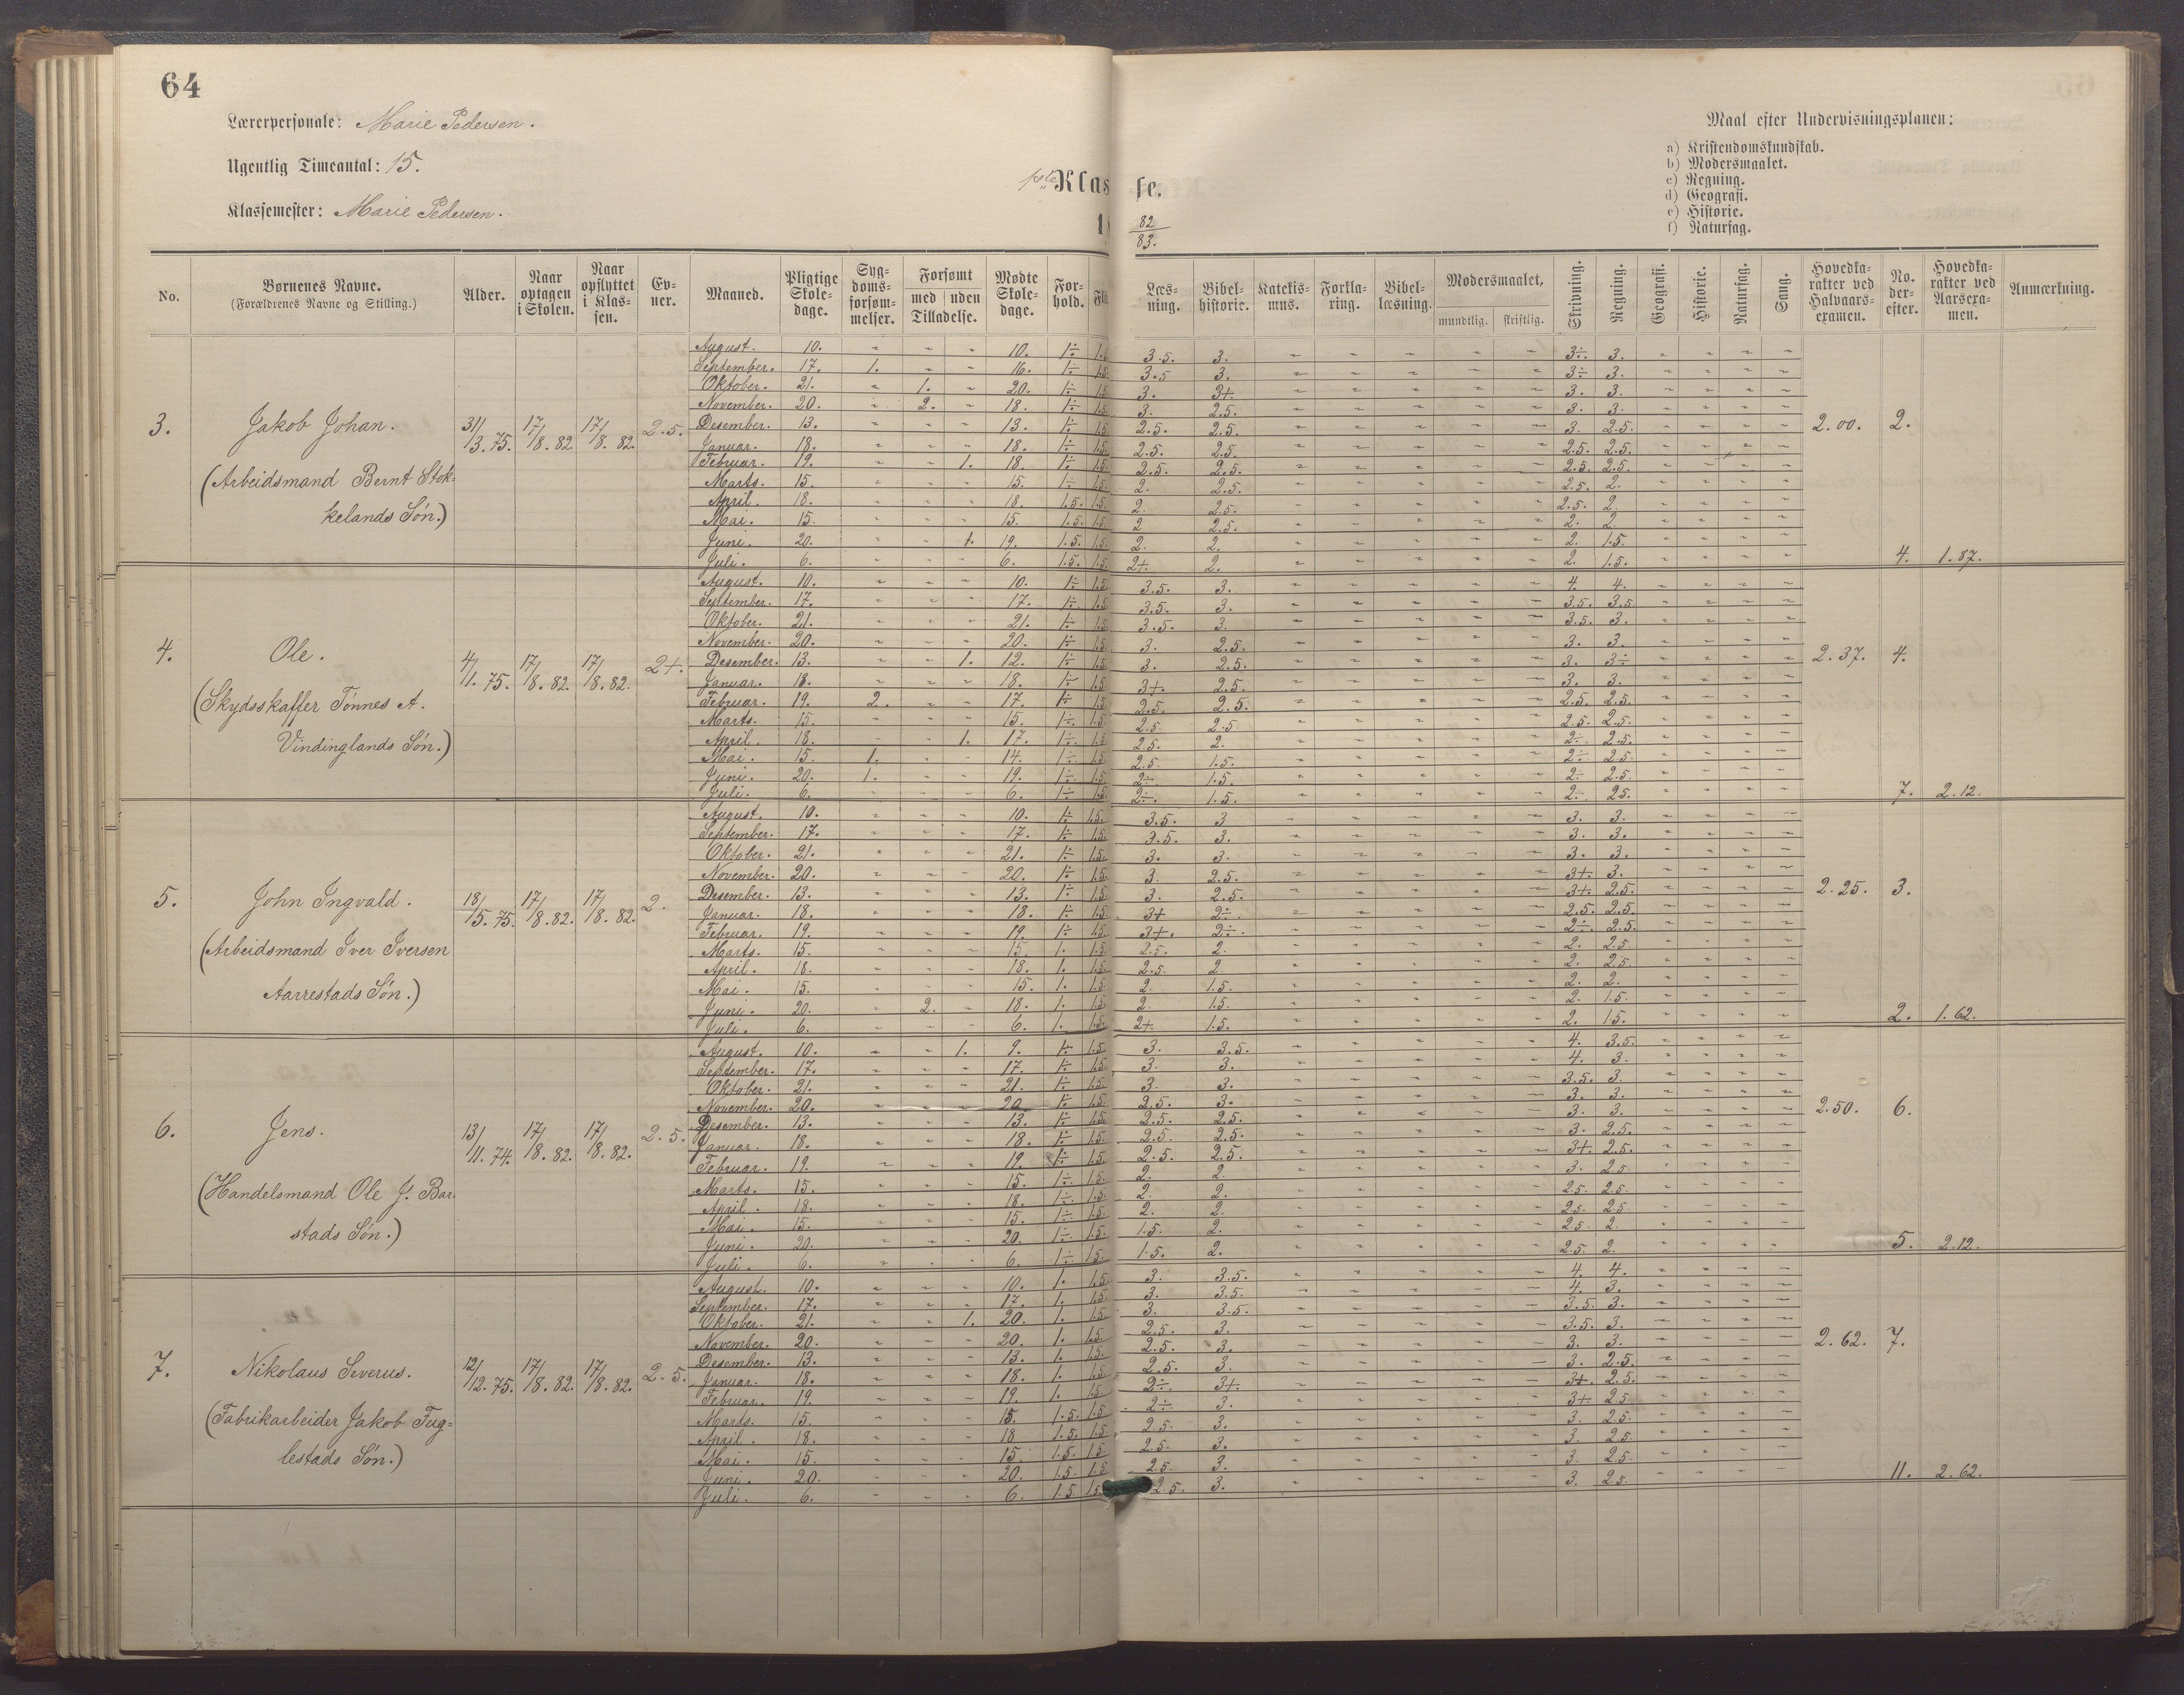 64
Lærerpersonale: Marie Pedersen.
Ugentlig Timeantal: 15.
Klassemester: Marie Pedersen.
1ste Klasse.
18 82/83.
Maal efter Undervisningsplanen:
a) Kristendomskundskab.
b) Modersmaalet.
c) Regning.
d) Geografi.
e) Historie.
f) Naturfag.
No. | Børnenes Navne. (Forældrenes Navne og Stilling.) | Alder. | Naar optagen i Skolen. | Naar opflyttet i Klassen. | Evner. | Maaned. | Pligtige Skoledage. | Sygdomsforsømmelser. | Forsømt med uden Tilladelse. | Mødte Skoledage. | Forhold. | Fl | Læsning. | Bibelhistorie. | Katekismus. | Forklaring. | Bibellæsning. | Modersmaalet, mundtlig. skriftlig. | Skrivning. | Regning. | Geografi. | Historie. | Naturfag. | Sang. | Hovedkarakter ved Halvaarsexamen. | No. derefter. | Hovedkarakter ved Aarsexamen. | Anmærkning.
3. Jakob Johan. 31/3.75. 17/8.82 17/8.82. 2.5. 2.00. 2.
(Arbeidsmand Bernt Stok=
kelands Søn.)
August. 10. " " " 10. 1÷ 1.5 3.5. 3. 3÷. 3.
September. 17. 1. " " 16. 1÷ 1.5 3.5 3. 3÷ 3.
Oktober. 21. " 1. " 20. 1÷ 1.5 3. 3+. 3. 3.
November. 20. " 2. " 18. 1÷ 1.5 3. 2.5. 3. 3.
Desember. 13. " " " 13. 1÷ 1.5 2.5. 2.5. 3. 2.5.
Januar. 18. " " " 18. 1÷ 1.5 2.5. 2.5. 2.5. 2.5.
Februar. 19. " " 1. 18. 1÷ 1.5 2.5. 2.5. 2.5. 2.5.
Marts. 15. " " " 15. 1÷ 1.5 2. 2.5. 2.5. 2.
April. 18. " " " 18. 1.5. 1.5 2. 2.5. 2.5. 2.
Mai. 15. " " " 15. 1.5. 1.5 2 2.5. 2. 2.
Juni. 20. " " 1. 19. 1.5. 1.5 2. 2. 2. 1.5.
Juli. 6. " " " 6. 1.5. 1.5 2+. 2. 2. 1.5. 4. 1.87.
4. Ole. 4/1.75. 17/8.82. 17/8.82. 2+. 2.37. 4.
(Skydsskaffer Tønnes A.
Vindinglands Søn.)
August. 10. " " " 10. 1÷ 1.5 3.5. 3. 4. 4.
September. 17. " " " 17. 1÷ 1.5 3.5. 3. 3.5. 3.5
Oktober. 21. " " " 21. 1÷ 1.5 3.5. 3. 3.5. 3.
November. 20. " " " 20. 1÷ 1.5 3. 2.5. 3. 3.
Desember. 13. " " 1. 12. 1÷ 1.5 3. 2.5. 3. 3÷
Januar. 18. " " " 18. 1÷ 1.5 3+. 2.5. 3. 3.
Februar. 19. 2. " " 17. 1÷ 1.5 2.5. 2.5. 2.5. 2.5.
Marts. 15. " " " 15. 1÷ 1.5 2.5. 2.5 2.5. 2.5.
April. 18. " " 1. 17. 1÷ 1.5 2.5. 2. 2÷. 2.5.
Mai. 15. 1. " " 14. 1÷ 1.5 2.5. 1.5. 2÷ 2.5
Juni. 20. 1. " " 19. 1÷ 1.5 2÷ 1.5. 2÷ 2.5.
Juli. 6. " " " 6. 1÷ 1.5 2÷. 1.5. 2÷. 2.5. 7. 2.12.
5. John Ingvald. 18/5.75. 17/8.82. 17/8.82. 2. 2.25. 3.
(Arbeidsmand Iver Iversen
Aarrestads Søn.)
August. 10. " " " 10. 1÷ 1.5 3.5. 3 3. 3.
September. 17. " " " 17. 1÷ 1.5 3.5. 3. 3. 3.
Oktober. 21. " " " 21. 1÷ 1.5 3. 3. 3. 3.
November. 20. " " " 20. 1÷ 1.5 3. 2.5. 3+. 3.
Desember. 13. " " " 13. 1÷ 1.5 3. 2.5. 3+. 2.5.
Januar. 18. " " " 18. 1÷ 1.5 3+ 2÷. 2.5. 2.5.
Februar. 19. " " " 19. 1÷ 1.5 3+. 2÷. 2÷. 2.5.
Marts. 15. " " " 15. 1. 1.5 2.5. 2. 2. 2.5
April. 18. " " " 18. 1. 1.5 2.5. 2. 2. 2.5.
Mai. 15. " " " 15. 1. 1.5 2. 1.5. 2. 2.
Juni. 20. " 2. " 18. 1. 1.5 2. 1.5. 2. 1.5.
Juli. 6. " " " 6. 1. 1.5 2+. 1.5. 2. 1.5. 2. 1.62.
6. Jens. 13/11.74. 17/8.82. 17/8.82. 2.5. 2.50. 6.
(Handelsmand Ole J. Bar
stads Søn.)
August. 10. " " 1. 9. 1÷ 1.5 3. 3.5. 4. 3.5.
September. 17. " " " 17. 1÷ 1.5 3. 3. 4. 3.
Oktober. 21. " " " 21. 1÷ 1.5 3. 3. 3.5. 3.
November. 20. " " " 20. 1÷ 1.5 2.5. 3. 3. 3.
Desember. 13. " " " 13. 1÷ 1.5 2.5. 2.5. 3. 3.
Januar. 18. " " " 18. 1÷ 1.5 2.5. 2.5. 3. 2.5.
Februar. 19. " " " 19. 1÷ 1.5 2.5. 2.5. 3+. 2.5.
Marts. 15. " " " 15. 1÷ 1.5 2. 2. 3. 2.5.
April. 18. " " " 18. 1÷ 1.5 2. 2. 2.5. 2.5.
Mai. 15. " " " 15. 1÷ 1.5 2. 2. 2.5. 2.5
Juni. 20. " " " 20. 1÷ 1.5 1.5. 2. 2.5. 2.
Juli. 6. " " " 6. 1÷ 1.5 1.5. 2. 2.5. 2. 5. 2.12.
7. Nikolaus Severus. 12/12.75. 17/8.82. 17/8.82. 2.5. 2.62. 7.
(Fabrikarbeider Jakob Fug=
lestads Søn.)
August. 10. " " " 10. 1. 1.5 3. 3.5. 4. 4.
September. 17. " " " 17. 1. 1.5 3. 3.5. 4. 3.
Oktober. 21. " " 1. 20. 1. 1.5 3. 3.5. 3.5. 3.
November. 20. " " " 20. 1. 1.5 2.5. 3. 3.5. 3.
Desember. 13. " " " 13. 1. 1.5 2.5. 3. 3. 3.
Januar. 18. " " " 18. 1. 1.5 2.5. 3. 3. 2.5.
Februar. 19. " " " 19. 1. 1.5 2÷. 3+. 3+. 2.5.
Marts. 15. " " " 15. 1.5. 1.5 2÷ 3. 3+ 2.5
April. 18. " " " 18 1.5. 1.5 2.5. 3. 3. 2.5.
Mai. 15. " " " 15. 1.5. 1.5 2.5. 3. 3. 2.5
Juni. 20. " " " 20. 1.5. 1.5 2.5. 3. 3. 2.5.
Juli. 6. " " " 6. 1.5 1.5 2.5. 3. 3. 2.5. 11. 2.62.